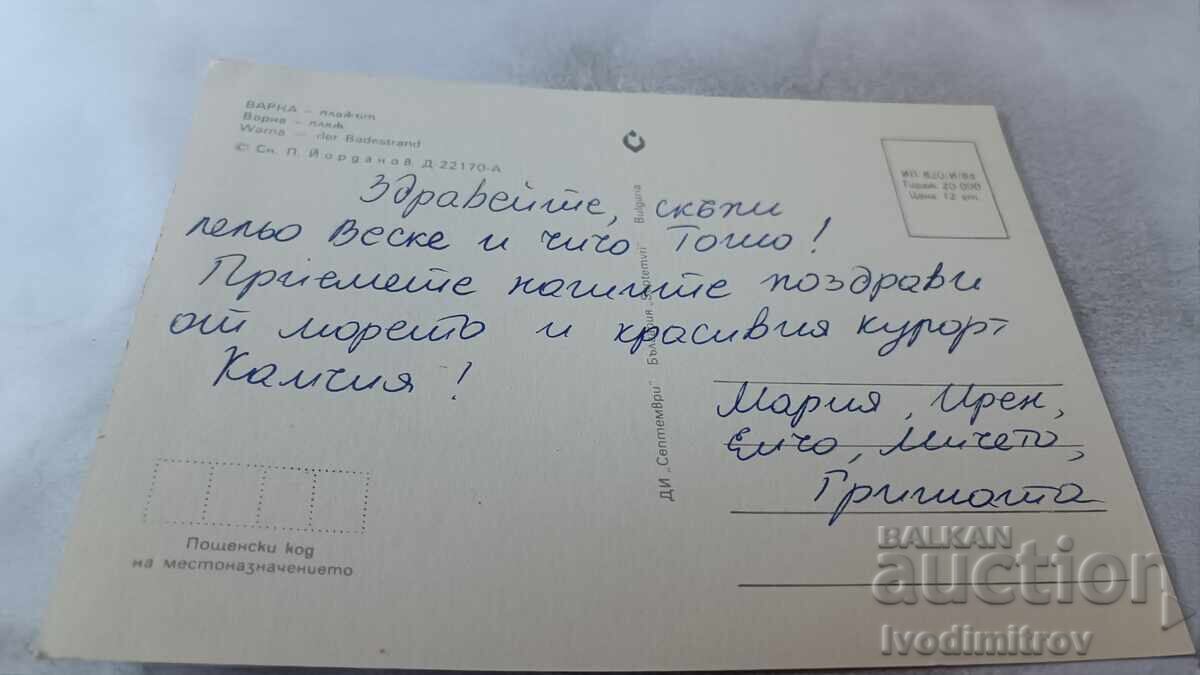 ВАРНА – плажът
Варна – пляж
Warna – der Badestrand
© Сн. П. Йорданов Д-22170-А
Здравейте, скъпи
лельо Веске и чичо Тошо!
Приемете нашите поздрави
от морето и красивия курорт
Камчия!
Пощенски код
на местоназначението
ДИ „Септември" България „Septemvri" Bulguria
Тираж 20 000
Цена 12 ст.
Мария, Ирен,
Емчо, Мичето,
Гришата
BALKAN
auction
Ivodimitrov